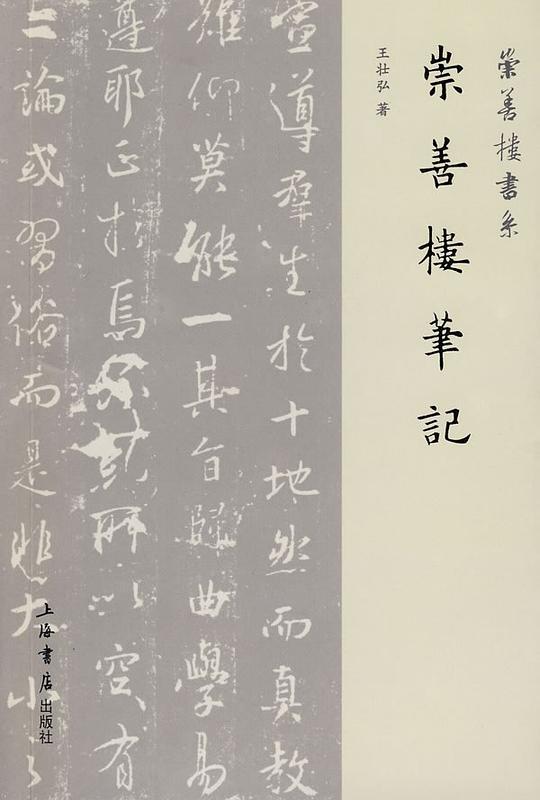 崇善樓書系
崇善樓筆記
王壮弘 著
宣導群生於十地然而真教
難仰莫能一其旨歸曲學易
遵耶正於焉紛糺所以空有
二論或習俗而是非大小之
上海書店出版社